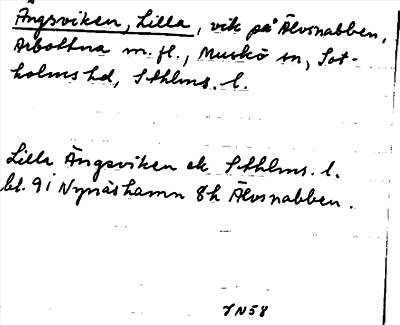 Ängsviken, Lilla, vik på Älvsnabben,
Arbottna m. fl., Muskö sn, Sot-
holms hd, Sthlms. l.
Lilla Ängsviken ek Sthlms. l.
bl. 91 Nynäshamn 8h Älvsnabben.
JN58